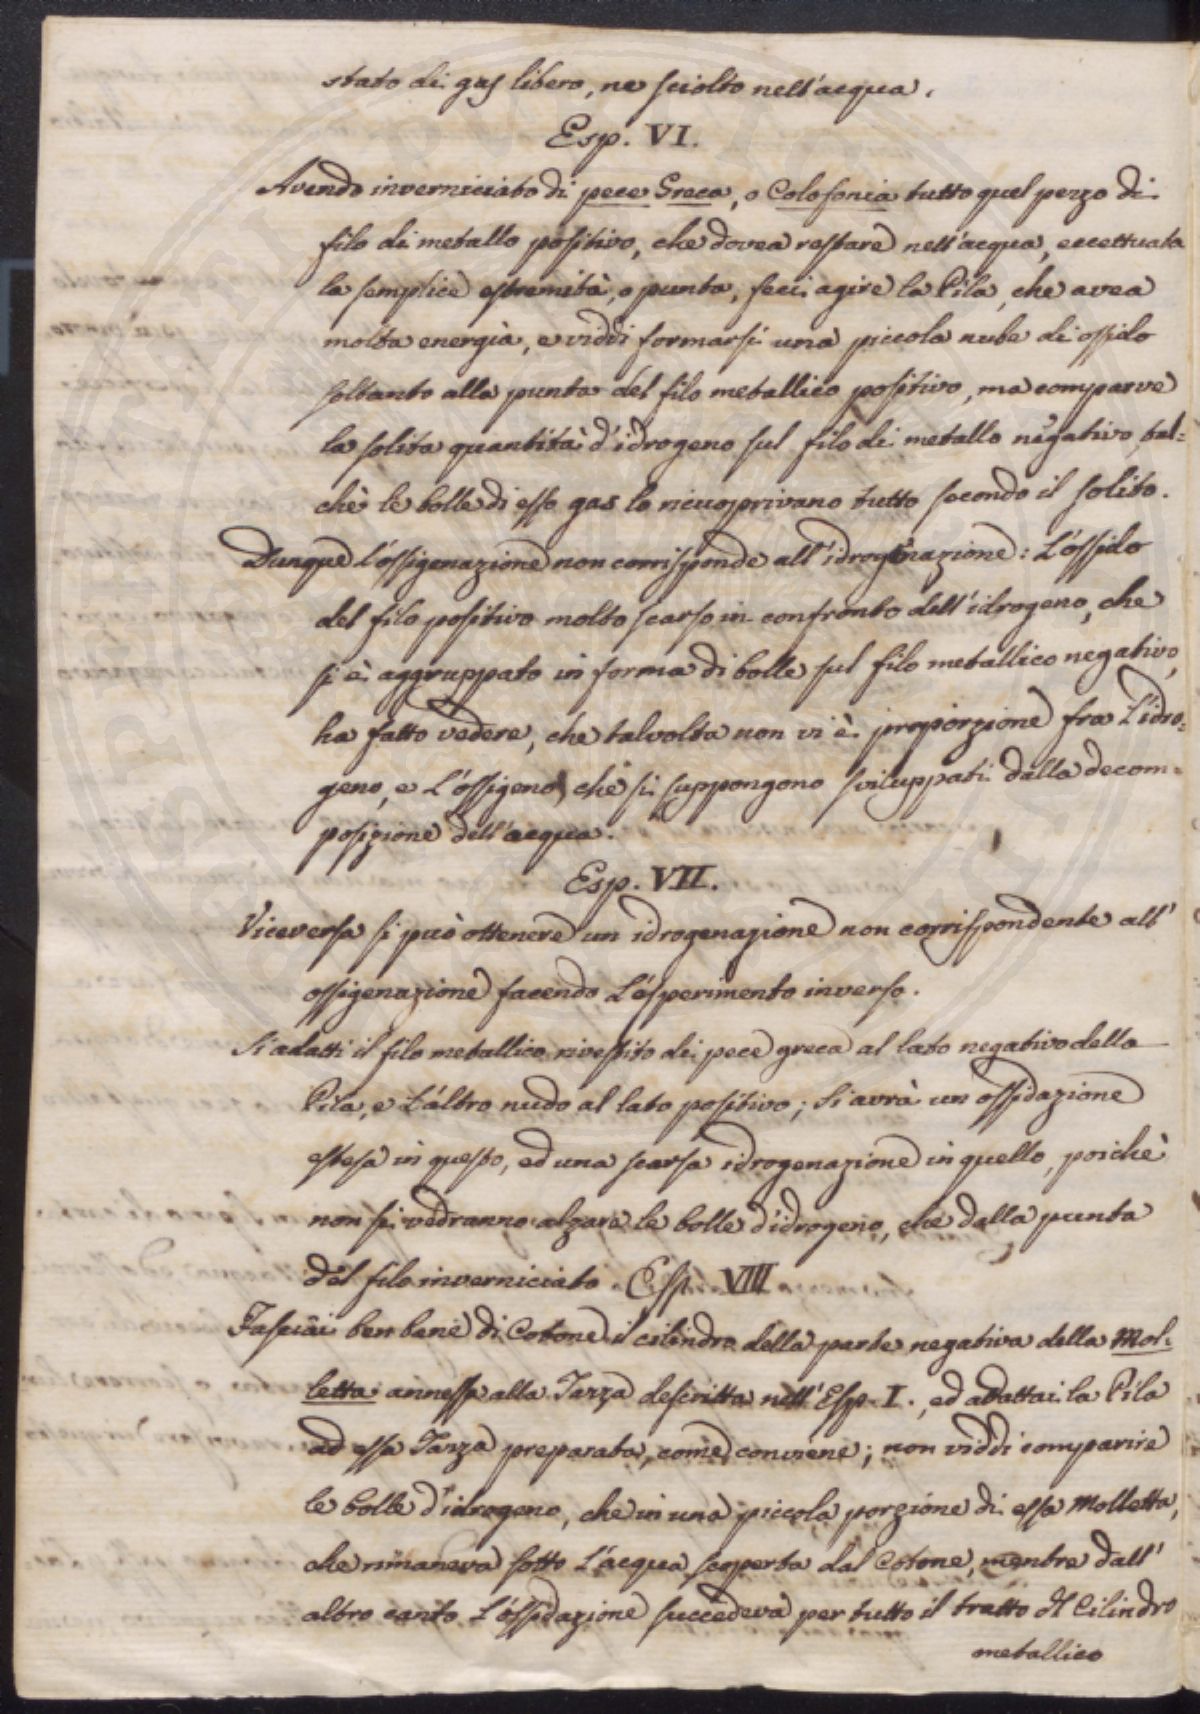 stato di gas libero, ne sciolto nell'acqua.
Esp. VI.
Avendo inverniciato di pece Greca, o Colofonia tutto quel pezzo di
filo di metallo positivo, che dovea restare nell'acqua, eccettuata
la semplice estremità, o punta, feci agire la Pila, che avea
molta energia, e viddi formarsi una piccola nube di ossido
soltanto alla punta del filo metallico positivo, ma comparve
la solita quantità d'idrogeno sul filo di metallo negativo, tal=
chè le bolle di esso gas lo ricuoprivano tutto secondo il solito.
Dunque l'ossigenazione non corrisponde all'idrogenazione: L'ossido
del filo positivo molto scarso in confronto dell'idrogeno, che
si è aggruppato in forma di bolle sul filo metallico negativo,
ha fatto vedere, che talvolta non vi è proporzione fra L'idro=
geno, e L'ossigeno, che si suppongono sviluppati dalla decom=
posizione dell'acqua.
Esp. VII.
Viceversa si può ottenere un idrogenazione non corrispondente all'
ossigenazione facendo L'esperimento inverso.
Si adatti il filo metallico rivestito di pece greca al lato negativo della
Pila, e L'altro nudo al lato positivo; si avrà un ossidazione
estesa in questo, ed una scarsa idrogenazione in quello, poichè
non si vedranno alzare le bolle d'idrogeno, che dalla punta
del filo inverniciato. Esp. VIII
Fasciai ben bene di Cotone il cilindro della parte negativa della Mol=
letta annessa alla Tazza descritta nell'Esp. I., ed adattai la Pila
ad essa Tazza preparata, come conviene; non viddi comparire
le bolle d'idrogeno, che in una piccola porzione di essa Molletta,
che rimaneva sotto L'acqua scoperta dal Cotone, mentre dall'
altro canto L'ossidazione succedeva per tutto il tratto del Cilindro
metallico